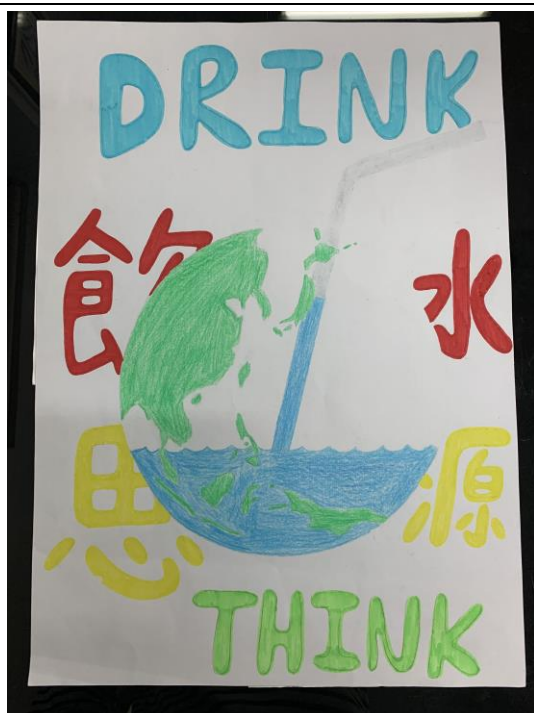 DRINK
飲 水
思 源
THINK